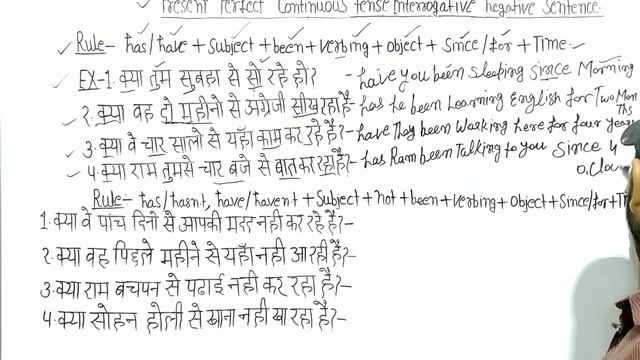 Present Perfect Continuous Tense Interrogative negative Sentence.
Rule- has/have + Subject + been + verbing + object + Since/for + Time.
EX-1. क्या तुम सुबहा से सो रहे हो? - have you been Sleeping Since Morning
२. क्या वह दो महीनो से अंग्रेजी सीख रहा है - has he been Learning English for Two Mon Ths
3. क्या वे चार सालो से यहाँ काम कर रहे है? - have They been Working here for four years
4. क्या राम तुमसे चार बजे से बात कर रहा है? - has Ram been Talking to you Since 4 o,Clo
Rule- has/hasnt, have/havent + Subject + not + been + verbing + Object + Since/for + Ti
1. क्या वे पांच दिनो से आपकी मदद नही कर रहे है? -
२. क्या वह पिछले महीने से यहाँ नही आ रही है? -
3. क्या राम बचपन से पढाई नही कर रहा है? -
4. क्या सोहन होली से खाना नही खा रहा है? -